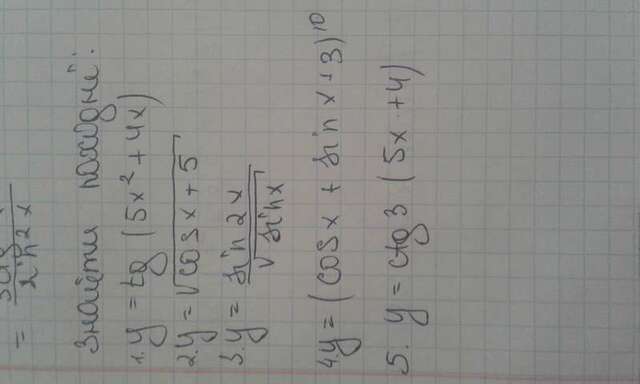 = / sin2x
Знайти похідні:
1. y = tg (5x² + 4x)
2. y = √cosx + 5
3. y = sin 2x / √sinx
4. y = (cosx + sin x + 3)¹⁰
5. y = ctg3 (5x + 4)